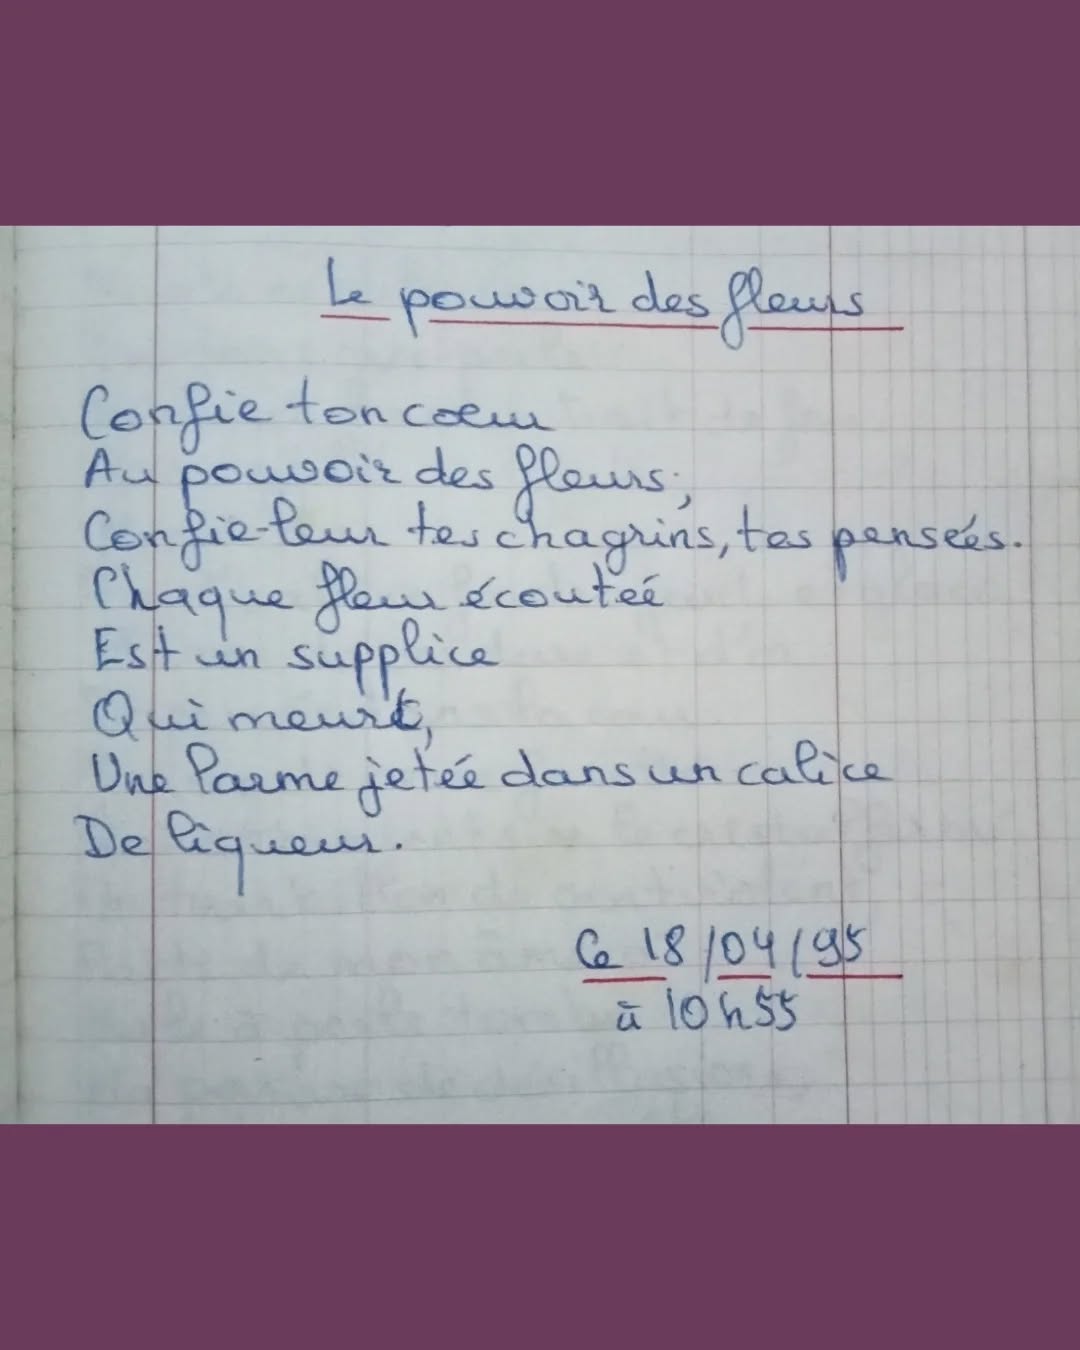 Le pouvoir des fleurs
Confie ton cœur
Au pouvoir des fleurs;
Confie-leur tes chagrins, tes pensées.
Chaque fleur écoutée
Est un supplice
Qui meurt,
Une larme jetée dans un calice
De liqueur.
Ce 18/04/95
à 10h55